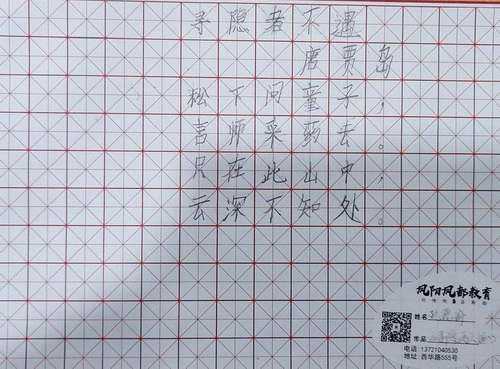 寻隐者不遇
唐贾岛
松下问童子，
言师采药去。
只在此山中，
云深不知处。
凤阳凤都教育
姓名
作品
电话：13721040530
地址：西华路555号